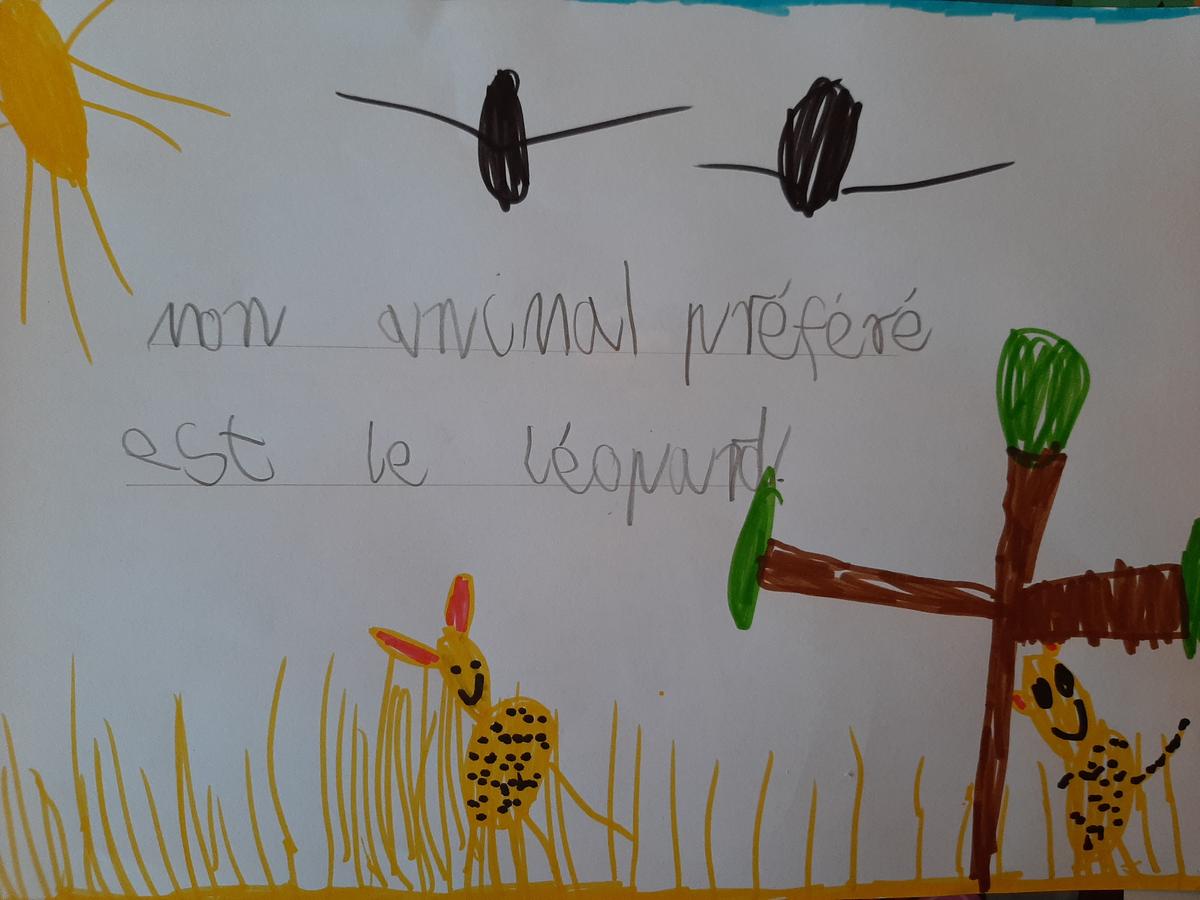 mon animal préféré
est le léopard.